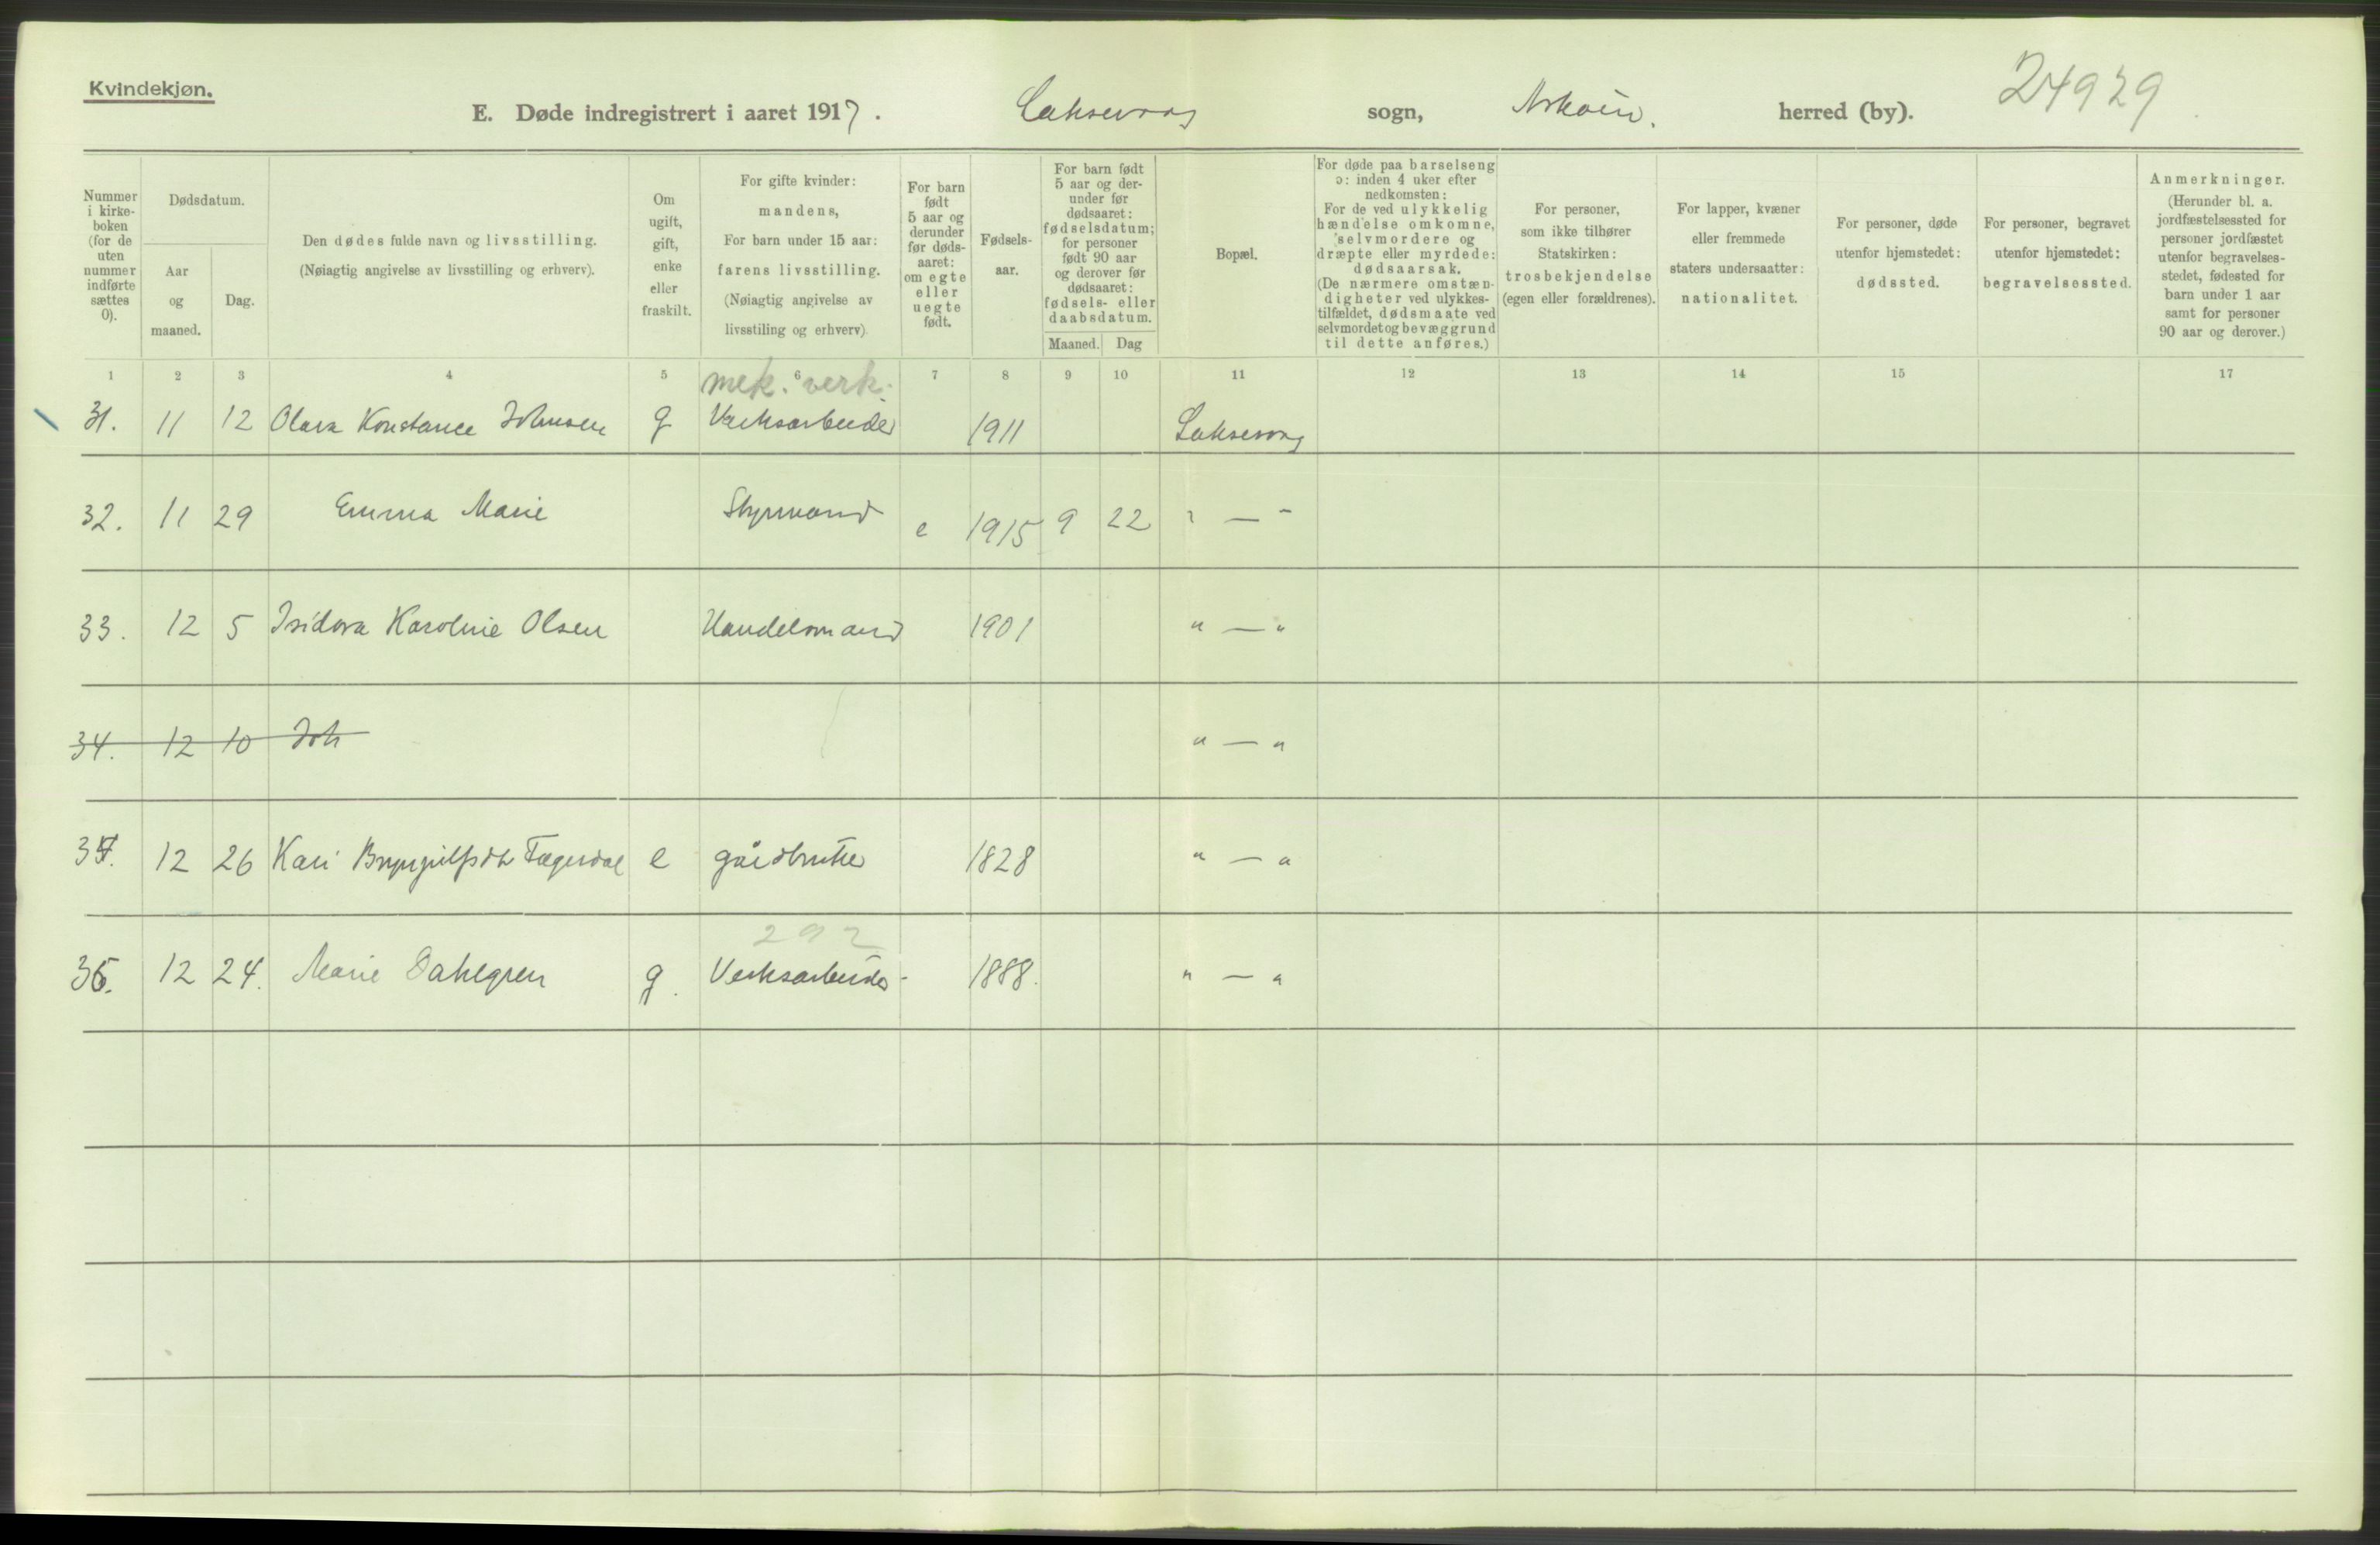 Kvindekjøn.
E. Døde indregistrert i aaret 1917. Laksevaag sogn, Askøen. herred (by). 24929
Nummer i kirkeboken (for de uten nummer indførte sættes 0).
Dødsdatum.
Aar og maaned.
Dag.
Den dødes fulde navn og livsstilling.
(Nøiagtig angivelse av livsstilling og erhverv).
Om ugift, gift, enke eller fraskilt.
For gifte kvinder: mandens,
For barn under 15 aar: farens livsstilling.
(Nøiagtig angivelse av livsstiling og erhverv).
For barn født 5 aar og derunder før dødsaaret: om egte eller uegte født.
Fødselsaar.
For barn født 5 aar og derunder før dødsaaret: fødselsdatum; for personer født 90 aar og derover før dødsaaret: fødsels- eller daabsdatum.
Maaned. Dag
Bopæl.
For døde paa barselseng ɔ: inden 4 uker efter nedkomsten:
For de ved ulykkelig hændelse omkomne, selvmordere og dræpte eller myrdede: dødsaarsak.
(De nærmere omstændigheter ved ulykkestilfældet, dødsmaate ved selvmordet og bevæggrund til dette anføres.)
For personer, som ikke tilhører Statskirken: trosbekjendelse (egen eller forældrenes).
For lapper, kvæner eller fremmede staters undersaatter: nationalitet.
For personer, døde utenfor hjemstedet: dødssted.
For personer, begravet utenfor hjemstedet: begravelsessted.
Anmerkninger.
(Herunder bl. a. jordfæstelsessted for personer jordfæstet utenfor begravelsesstedet, fødested for barn under 1 aar samt for personer 90 aar og derover.)
1 2 3 4 5 6 7 8 9 10 11 12 13 14 15 17
mek. verk.
31. 11 12 Olava Konstance Johnsen g Verksarbeider 1911 Laksevaag
32. 11 29 Emma Marie Styrmand e 1915 9 22 " — "
33. 12 5 Isidora Karoline Olsen Handelsmand 1901 " — "
34. 12 10 Joh " — "
12 26 Kari Brynjulfsdtr Fagerdal e gårdbruker 1828 " — "
292
35. 12 24. Marie Dahlgren g. Verksarbeider 1888. " — "